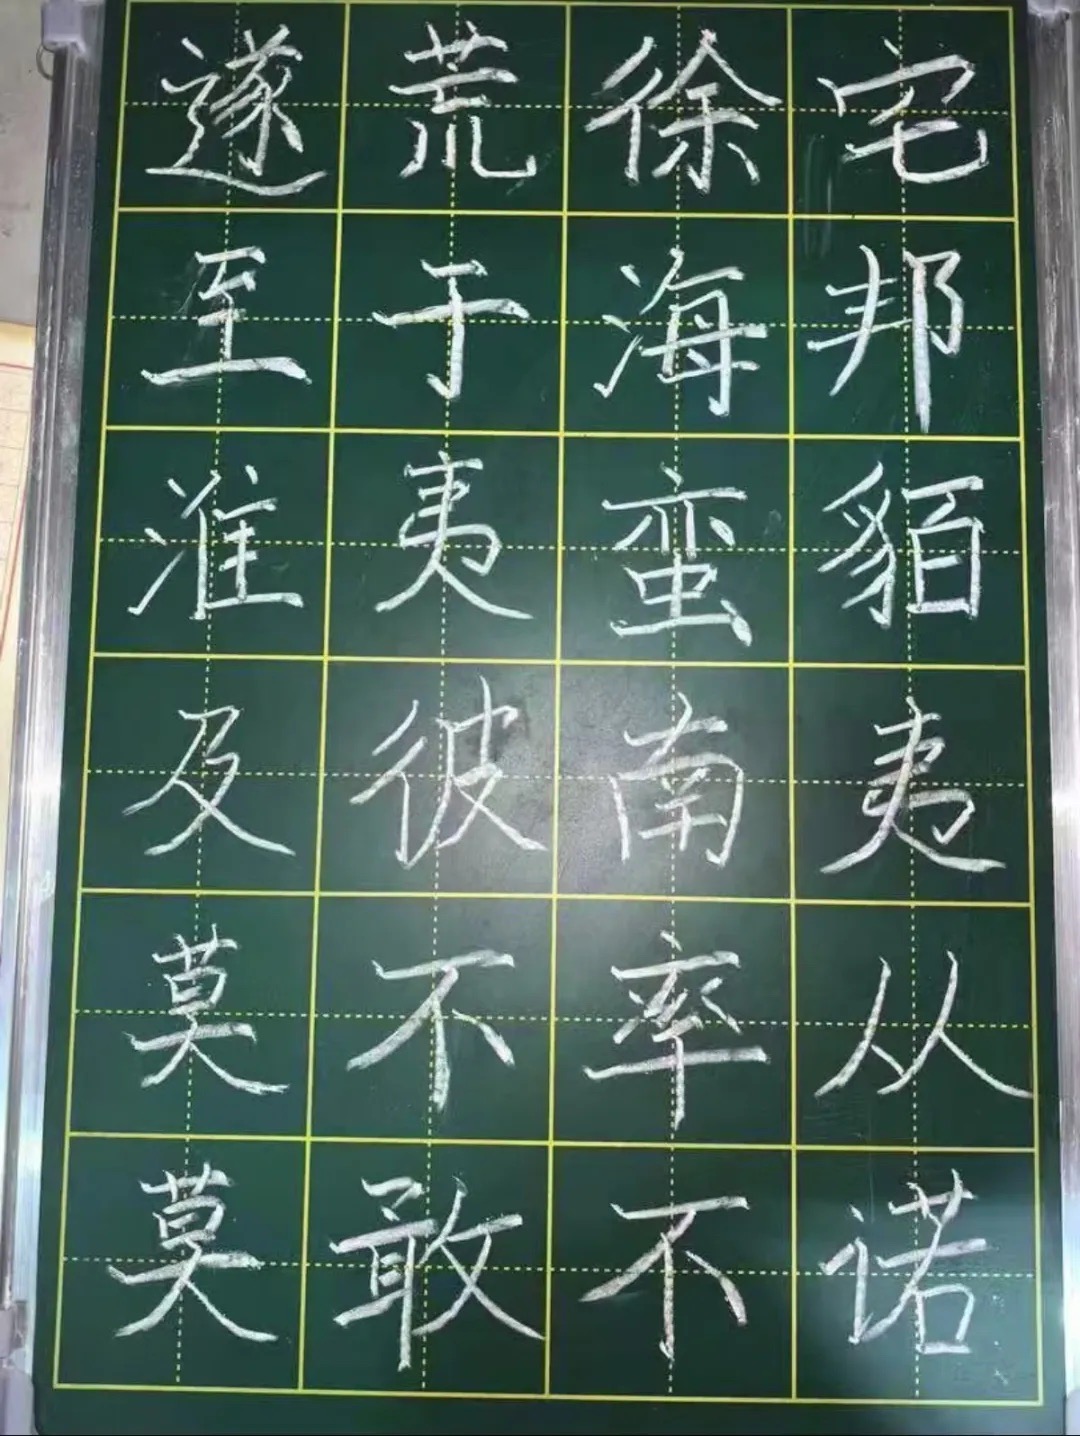 遂荒徐宅
至于海邦
淮夷蛮貊
及彼南夷
莫不率从
莫敢不诺